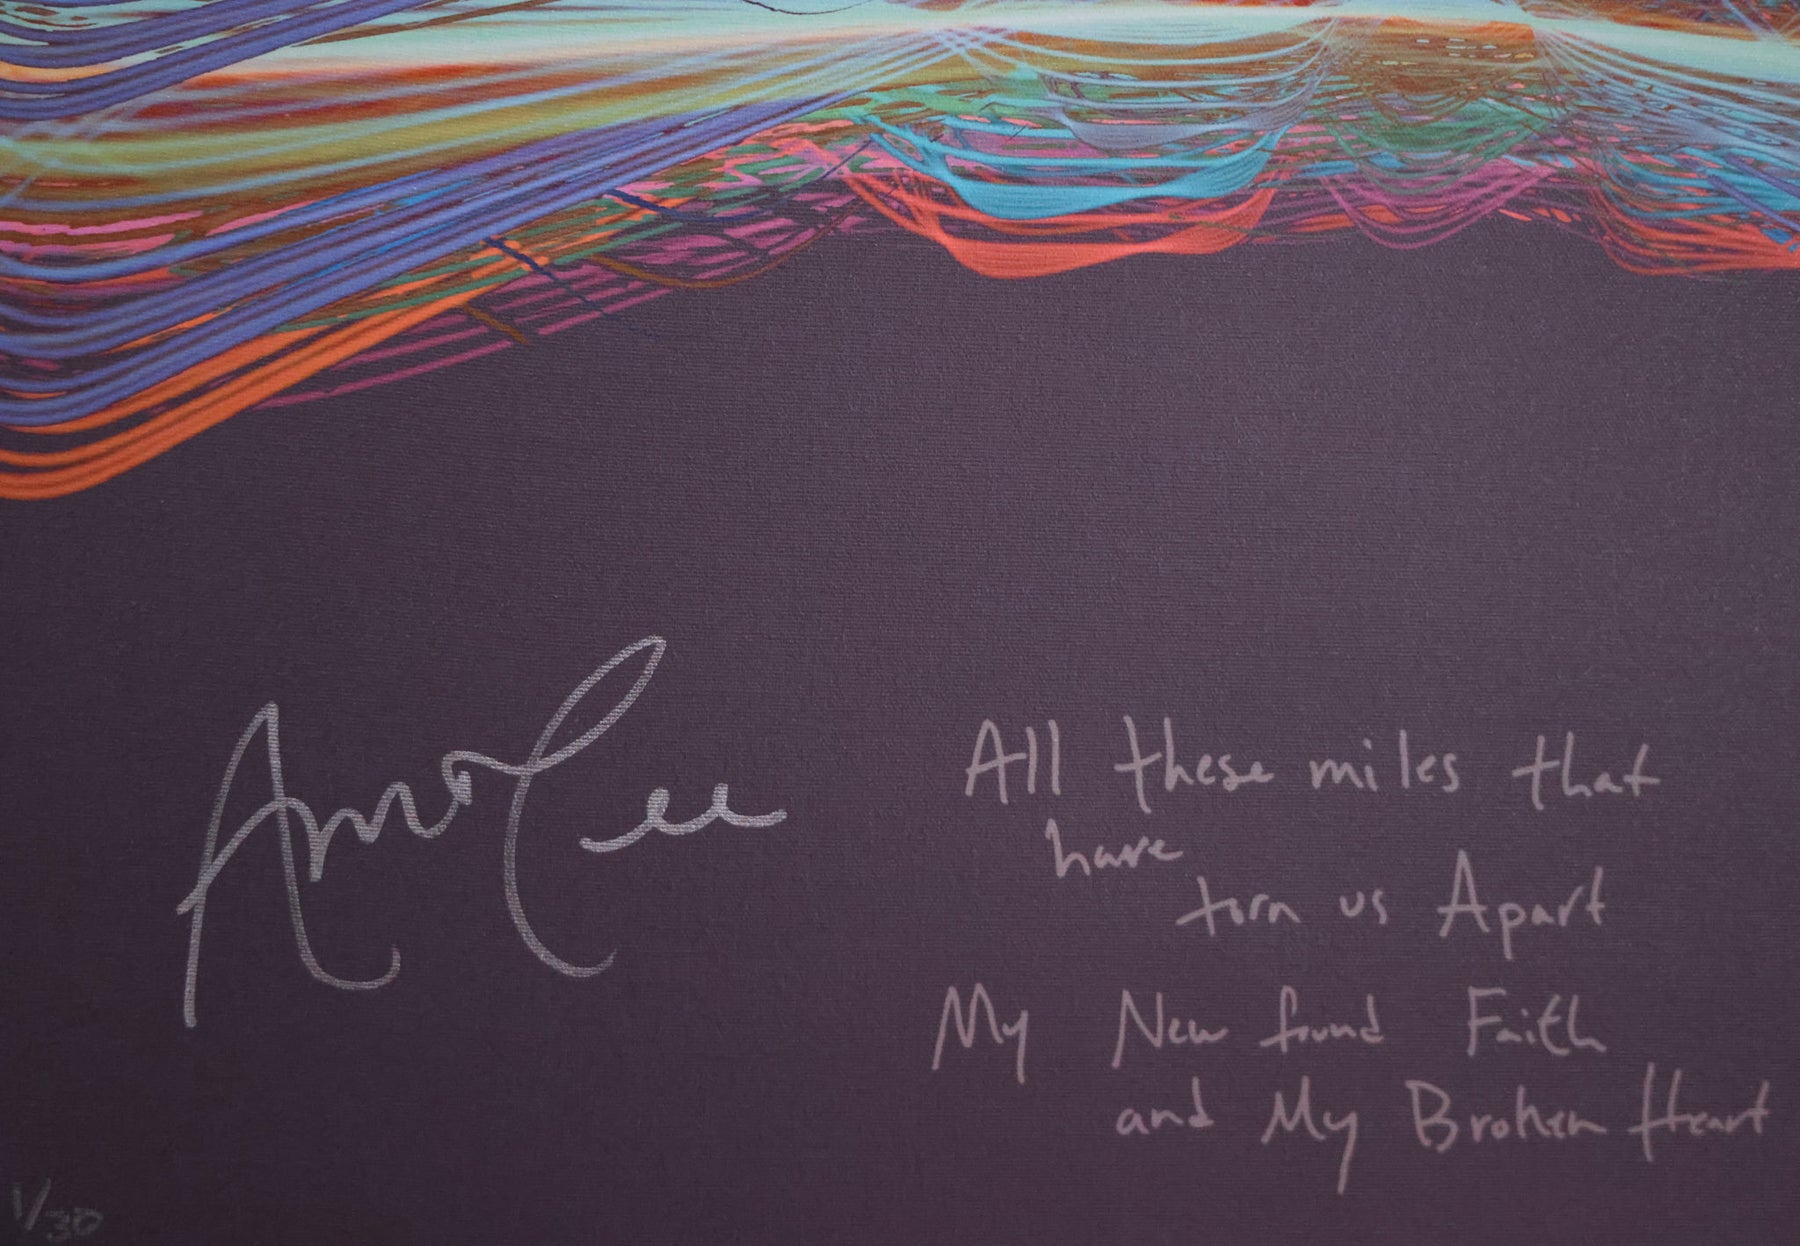 Amos Lee
All these miles that
have
torn us Apart
My New found Faith
and My Broken Heart
1/30